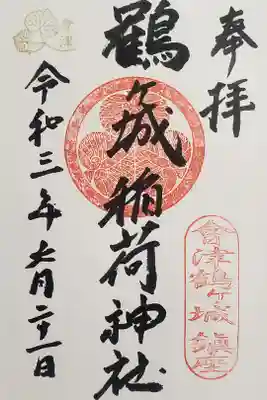 奉拝
會津鶴ヶ城鎮座
鶴ヶ城稲荷神社
令和三年六月二十一日